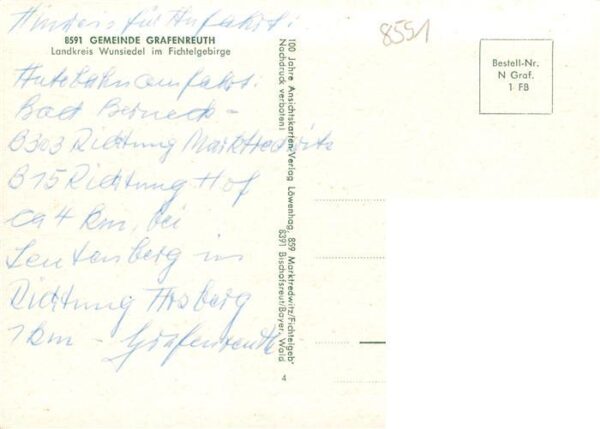 Hinweis für Anfahrt:
8591 GEMEINDE GRAFENREUTH
Landkreis Wunsiedel im Fichtelgebirge
Autobahnausfahrt:
Bad Berneck -
B303 Richtung Marktredwitz
B15 Richtung Hof
ca 4 km, bei
Richtung Arzberg
1 km - Grafenreuth
100 Jahre Ansichtskarten-Verlag Löwenhag, 859 Marktredwitz/Fichtelgeb.
Nachdruck verboten!
8391 Bischofsreut/Bayer. Wald
4
8591
Bestell-Nr.
N Graf.
1 FB